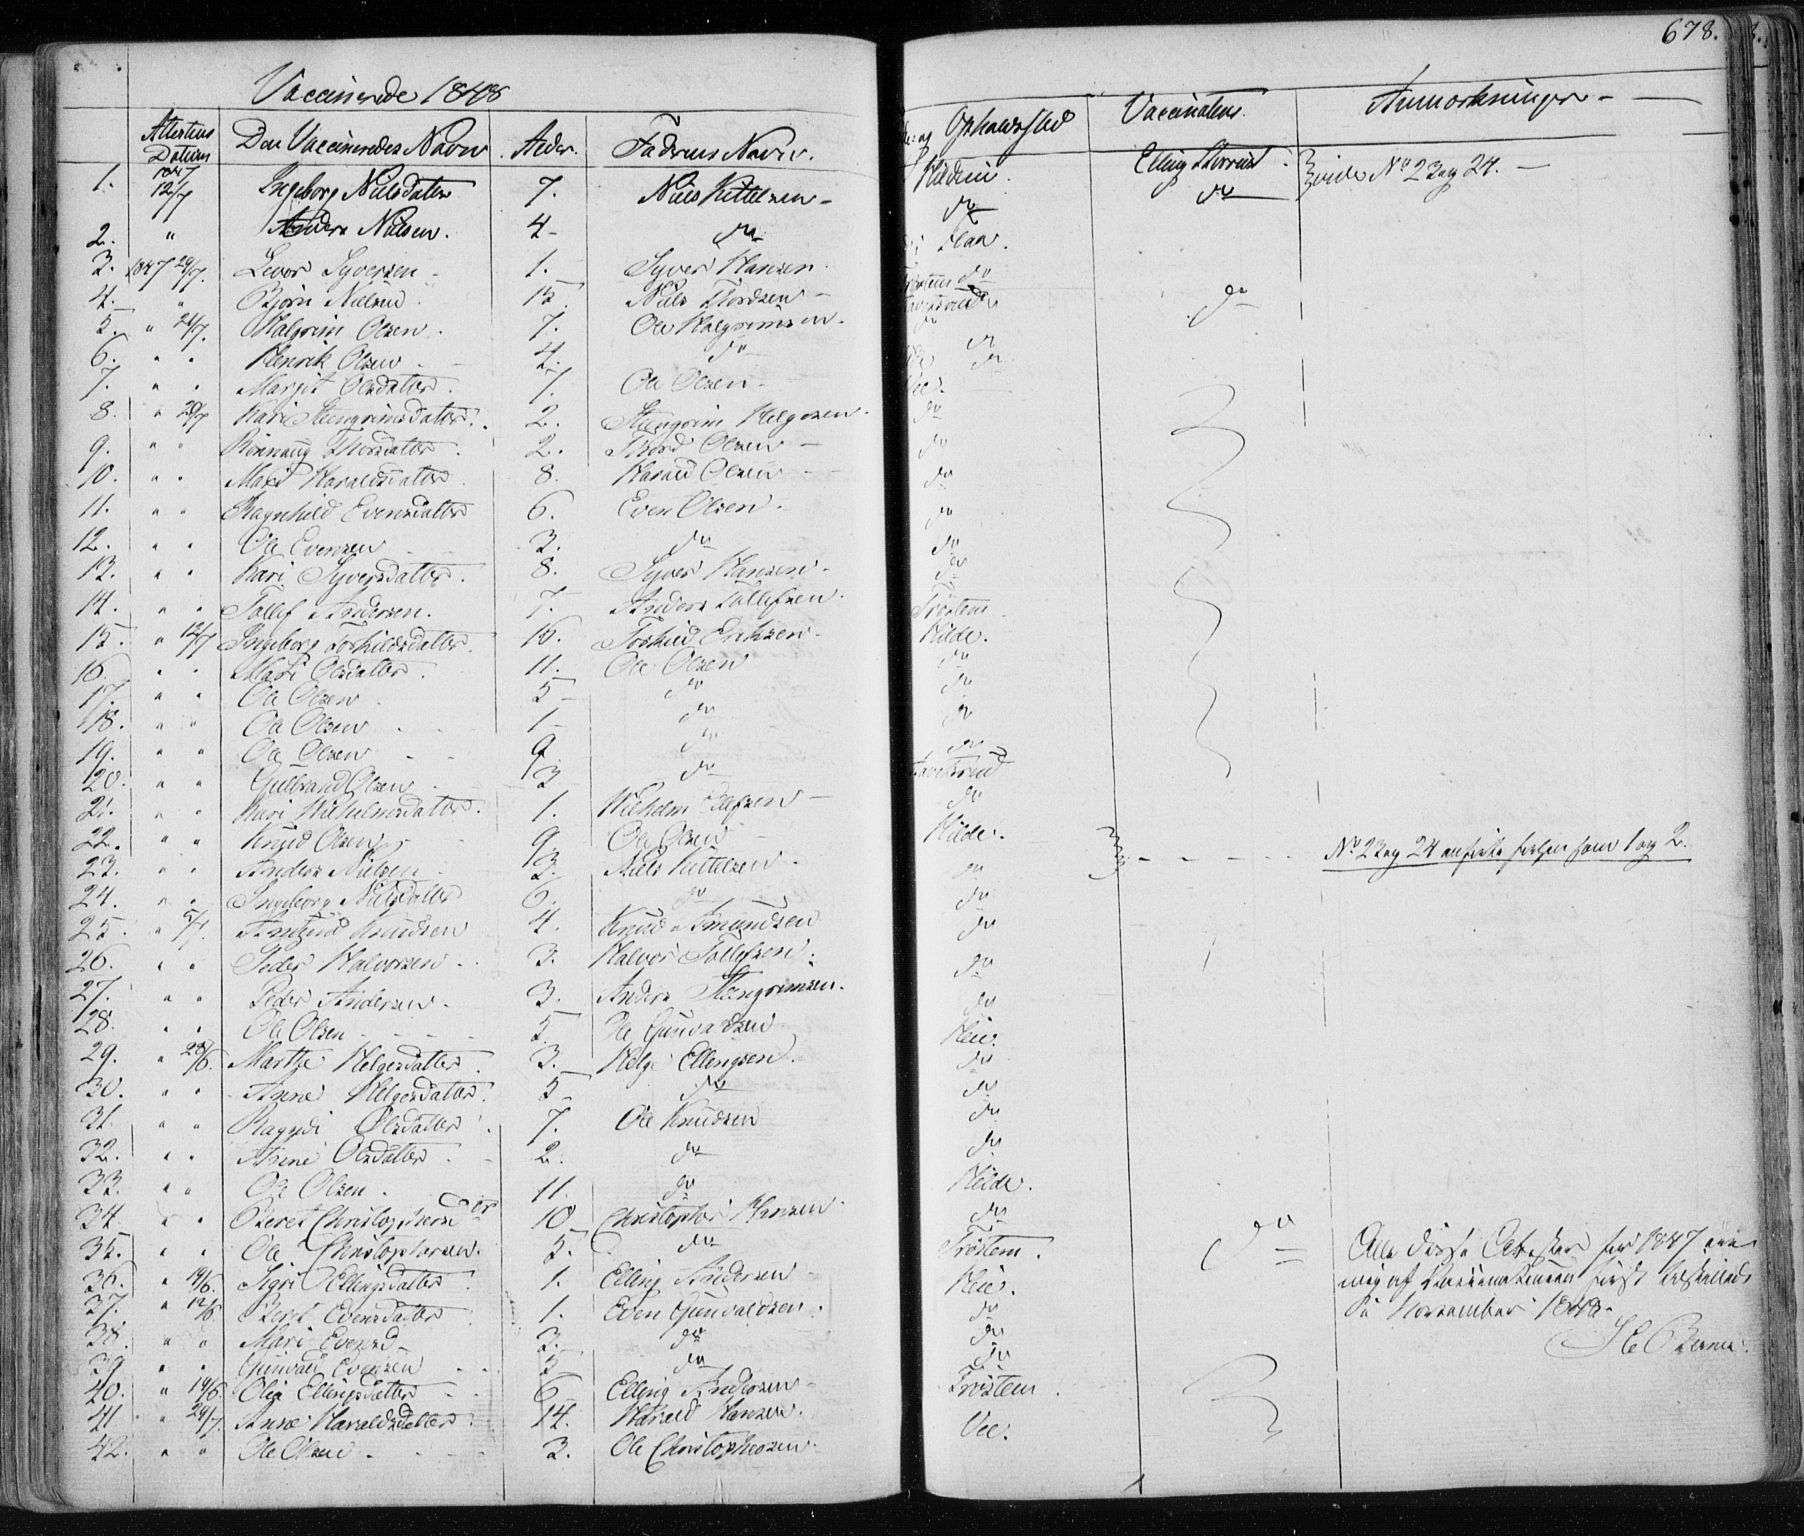 678.
Vaccinerede 1848
Attestens Datum | Den Vaccineredes Navn | Alder. | Faderens Navn. | Opholdssted | Vaccinateur | Anmærkninger
1. 1847 12/7 Ingeborg Nilsdatter 7. Niels Kittelsen Elling do
2. " Anders Nielsen. 4 do
3. 1847 29/7. Levor Syversen 1. Syver Hansen
4. " Bjørn Nielsen 15 Niels Thordsen Trøstem do
5. " 24/7. Halgrim Olsen. 7. Ole Halgrimsen. do
6. " " Henrik Olsen 4. do
7. " " Margit Olsdatter. 1. Ole Olsen
8. " 20/7 Kari Steengrimsdatter. 2. Steengrim Helgesen. do
9. " " Rønnaug Thorsdatter. 2. Thord Olsen do
10. " " Mari Haraldsdatter. 8. Harald Olsen do
11. " " Ragnhild Evensdatter 6. Even Olsen. do
12. " " Ole Evensen 3. do do
13. " " Kari Syversdatter. 8. Syver Hansen do
14. " " Tollef Andersen. 7. Anders Tollefsen. Trøstem
15. " 12/7 Ingeborg Torkildsdatter. 16. Torkild Eriksen. Hilde.
16. " " Mari Olsdatter. 11. Ole Olsen do
17. " " Ole Olsen 5 do do
18. " " Ole Olsen 1 do do
19. " " Ole Olsen 9 do do
20. " " Gulbrand Olsen 3 do
21. " " Kari Wilhelmsdatter. 1. Wilhelm do
22. " " Knud Olsen 9 Ole Olsen Hilde.
23. " " Anders Nielsen 3. Niels Kittelsen. do No 23 og 24 som 1 og 2.
24. " " Ingeborg Nilsdatter 6. do do
25. " 5/7. Amund Knudsen 4. Knud Amundsen do
26. " " Peder Halvorsen 3. Halvor Tollefsen. do
27. " " Peder Andersen. 3. Anders Steengrimsen. do
28. " " Ole Olsen 5. Ole Gunvaldsen
29. " 28/6. Marthe Helgesdatter. 3. Helge Ellingsen. do
30. " " Anne Helgesdatter. 5 do do
31. " " Olsdatter. 7. Ole Knudsen do
32. " " Anne Olsdatter. 2. do do
33. " " Ole Olsen. 11. do Hilde.
34. " " Beret Christophersdtr 10 Christopher Hansen. do do
35. " " Ole Christophersen. 5. do Trøstem.
36. " 19/6. Sigri Ellingsdatter. 1. Elling Andersen
37. " 12/6 Beret Evensdatter 1. Even Gunvaldsen. do
38. " " Mari Evensd 3. do do
39. " " Gunvald Evensen 5 do do
40. " 19/6. Olea Ellingsdatter 6 Elling Andersen Trøstem
41. " 29/7. Anne Haraldsdatter. 14. Harald Hansen.
42. " " Ole Olsen. 3. Ole Christophersen.
Alle disse Attester for 1847 ere
mig af Vaccinateuren først tilstillede
i November 1848.